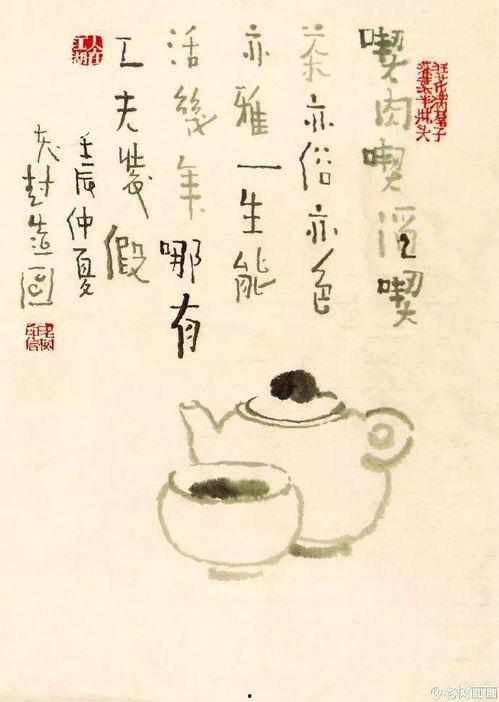 喫肉喫酒喫
茶亦俗亦色
亦雅一生能
活幾年哪有
工夫裝假
壬辰仲夏
人在江湖
@老树画画